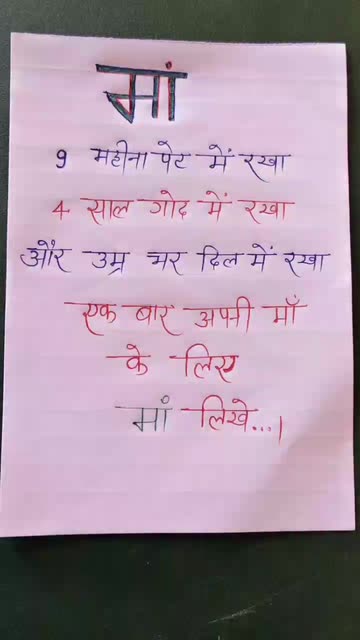 मां
9 महीना पेट में रखा
4 साल गोद में रखा
और उम्र भर दिल में रखा
एक बार अपनी माँ
के लिए
मां लिखे...।